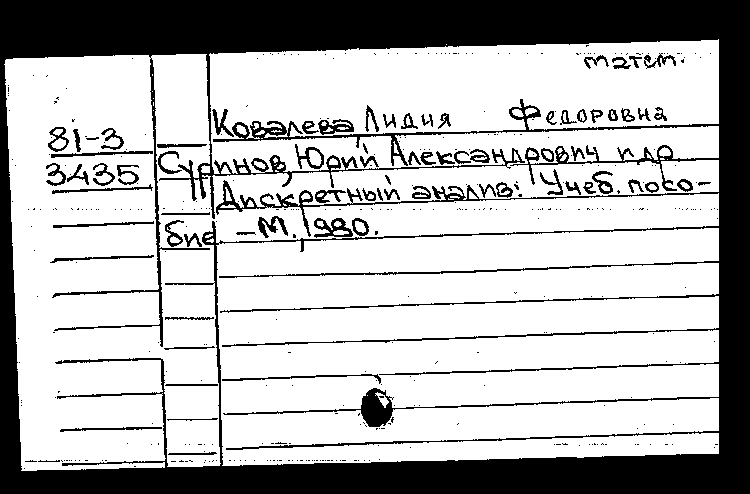 матем.
Ковалева, Лидия Федоровна
81-3
Суринов, Юрий Александрович и др
3435
Дискретный анализ: Учеб. посо-
бие. - М., 1980.